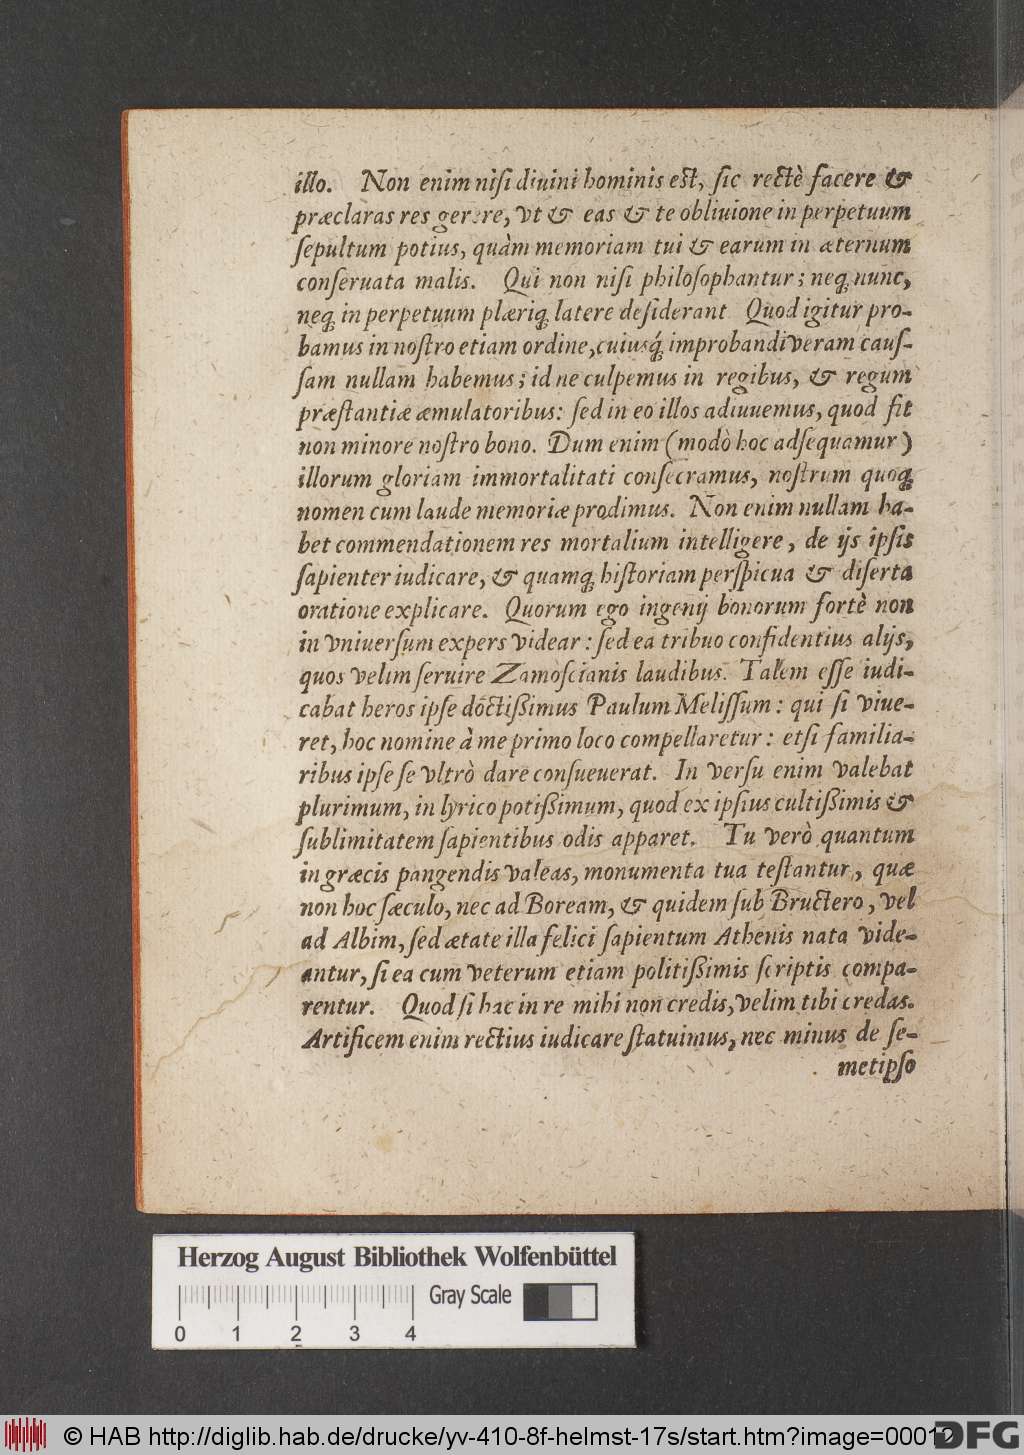 illo. Non enim niſi diuini hominis eſt, ſic rectè facere &
præclaras res gerere, vt & eas & te obliuione in perpetuum
ſepultum potius, quàm memoriam tui & earum in æternum
conſeruata malis. Qui non niſi philoſophantur; neq́; nunc,
neq́; in perpetuum plæriq́; latere deſiderant Quod igitur pro-
bamus in noſtro etiam ordine, cuiusq́; improbandi veram cauſ-
ſam nullam habemus; id ne culpemus in regibus, & regum
præſtantiæ æmulatoribus: ſed in eo illos adiuuemus, quod fit
non minore noſtro bono. Dum enim (modò hoc adſequamur)
illorum gloriam immortalitati conſecramus, noſtrum quoq́;
nomen cum laude memoriæ prodimus. Non enim nullam ha-
bet commendationem res mortalium intelligere, de ijs ipſis
ſapienter iudicare, & quamq́; hiſtoriam perſpicua & diſerta
oratione explicare. Quorum ego ingenij bonorum fortè non
in vniuerſum expers videar: ſed ea tribuo confidentius alijs,
quos velim ſeruire Zamoſcianis laudibus. Talem eſſe iudi-
cabat heros ipſe doctißimus Paulum Meliſſum: qui ſi viue-
ret, hoc nomine à me primo loco compellaretur: etſi familia-
ribus ipſe ſe vltrò dare conſueuerat. In verſu enim valebat
plurimum, in lyrico potißimum, quod ex ipſius cultißimis &
ſublimitatem ſapientibus odis apparet. Tu verò quantum
in græcis pangendis valeas, monumenta tua teſtantur, quæ
non hoc ſæculo, nec ad Boream, & quidem ſub Bructero, vel
ad Albim, ſed ætate illa felici ſapientum Athenis nata vide-
antur, ſi ea cum veterum etiam politißimis ſcriptis compa-
rentur. Quod ſi hac in re mihi non credis, velim tibi credas.
Artificem enim rectius iudicare ſtatuimus, nec minus de ſe-
metipſo
Herzog August Bibliothek Wolfenbüttel
Gray Scale
0 1 2 3 4
© HAB http://diglib.hab.de/drucke/yv-410-8f-helmst-17s/start.htm?image=00012
DFG